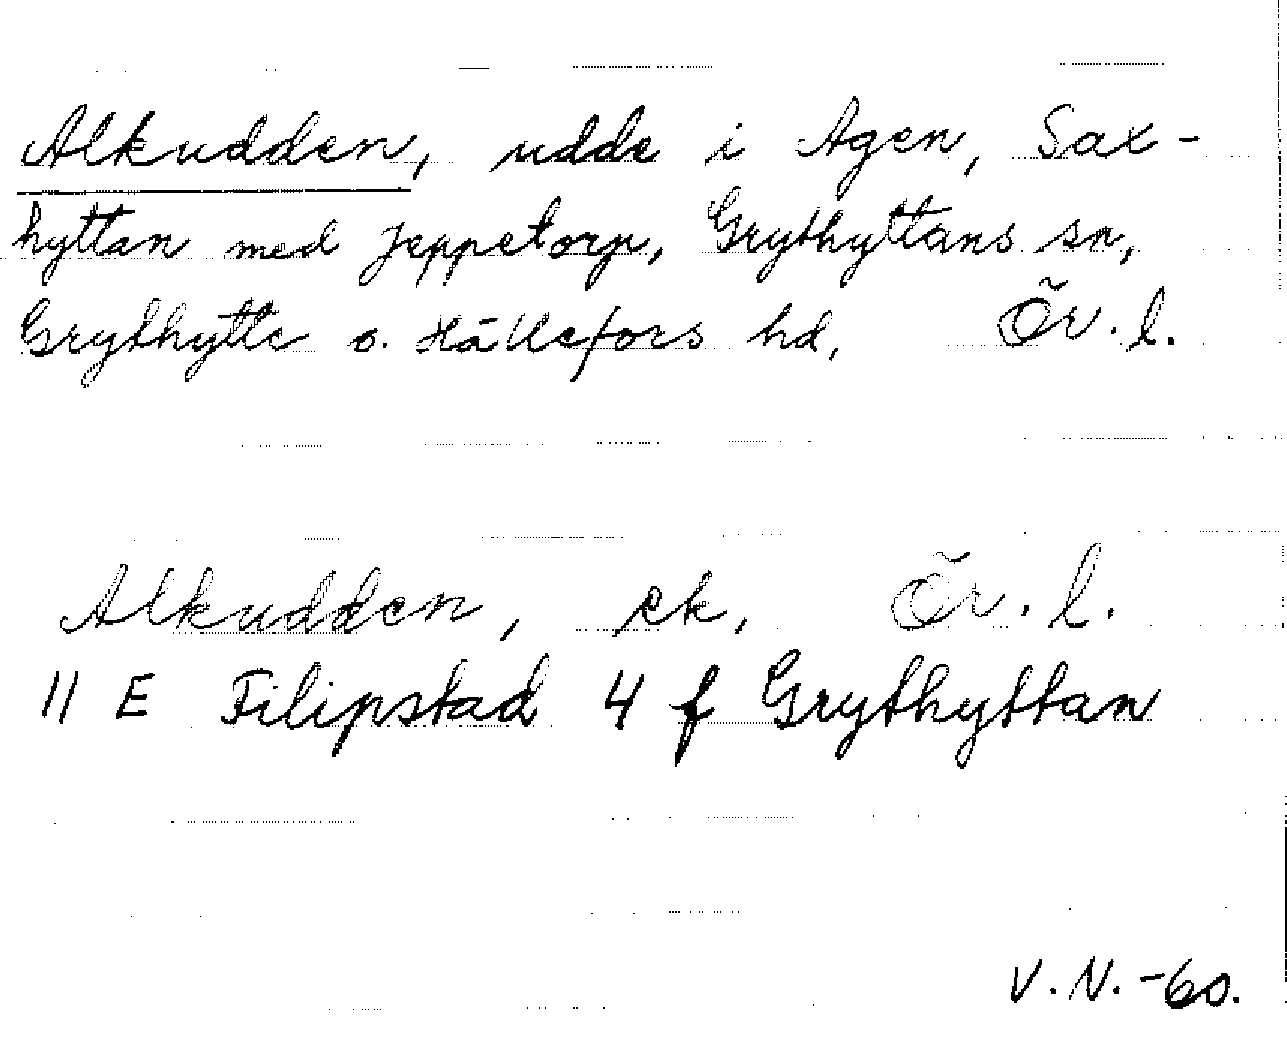 Alkudden, udde i Agen, Sax-
hyttan med Jeppetorp, Grythyttans sn,
Grythytte o. Hällefors hd, Ör. l.
Alkudden, ek, Ör. l.
11 E Filipstad 4 f Grythyttan
V. N. -60.